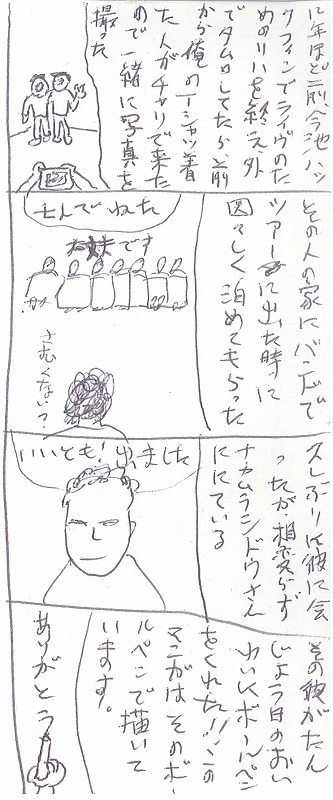 12年ほど前今池ハッ
クフィンでライヴのた
めのリハを終え、外
でタムロしてたら、前
から俺のTシャツ着
た人がチャリで来た
ので一緒に写真を
撮った
その人の家にバンドで
ツアーに出た時に
図々しく泊めてもらった
七人でねた
お嫁です
さむくない？
久しぶりに彼に会
ったが、相変らず
ナカムラシンドウさん
ににている
いいとも！出ました
その彼がたん
じょう日のおい
わいにボールペン
をくれた!!この
マンガはそのボー
ルペンで描いて
います。
ありがとう